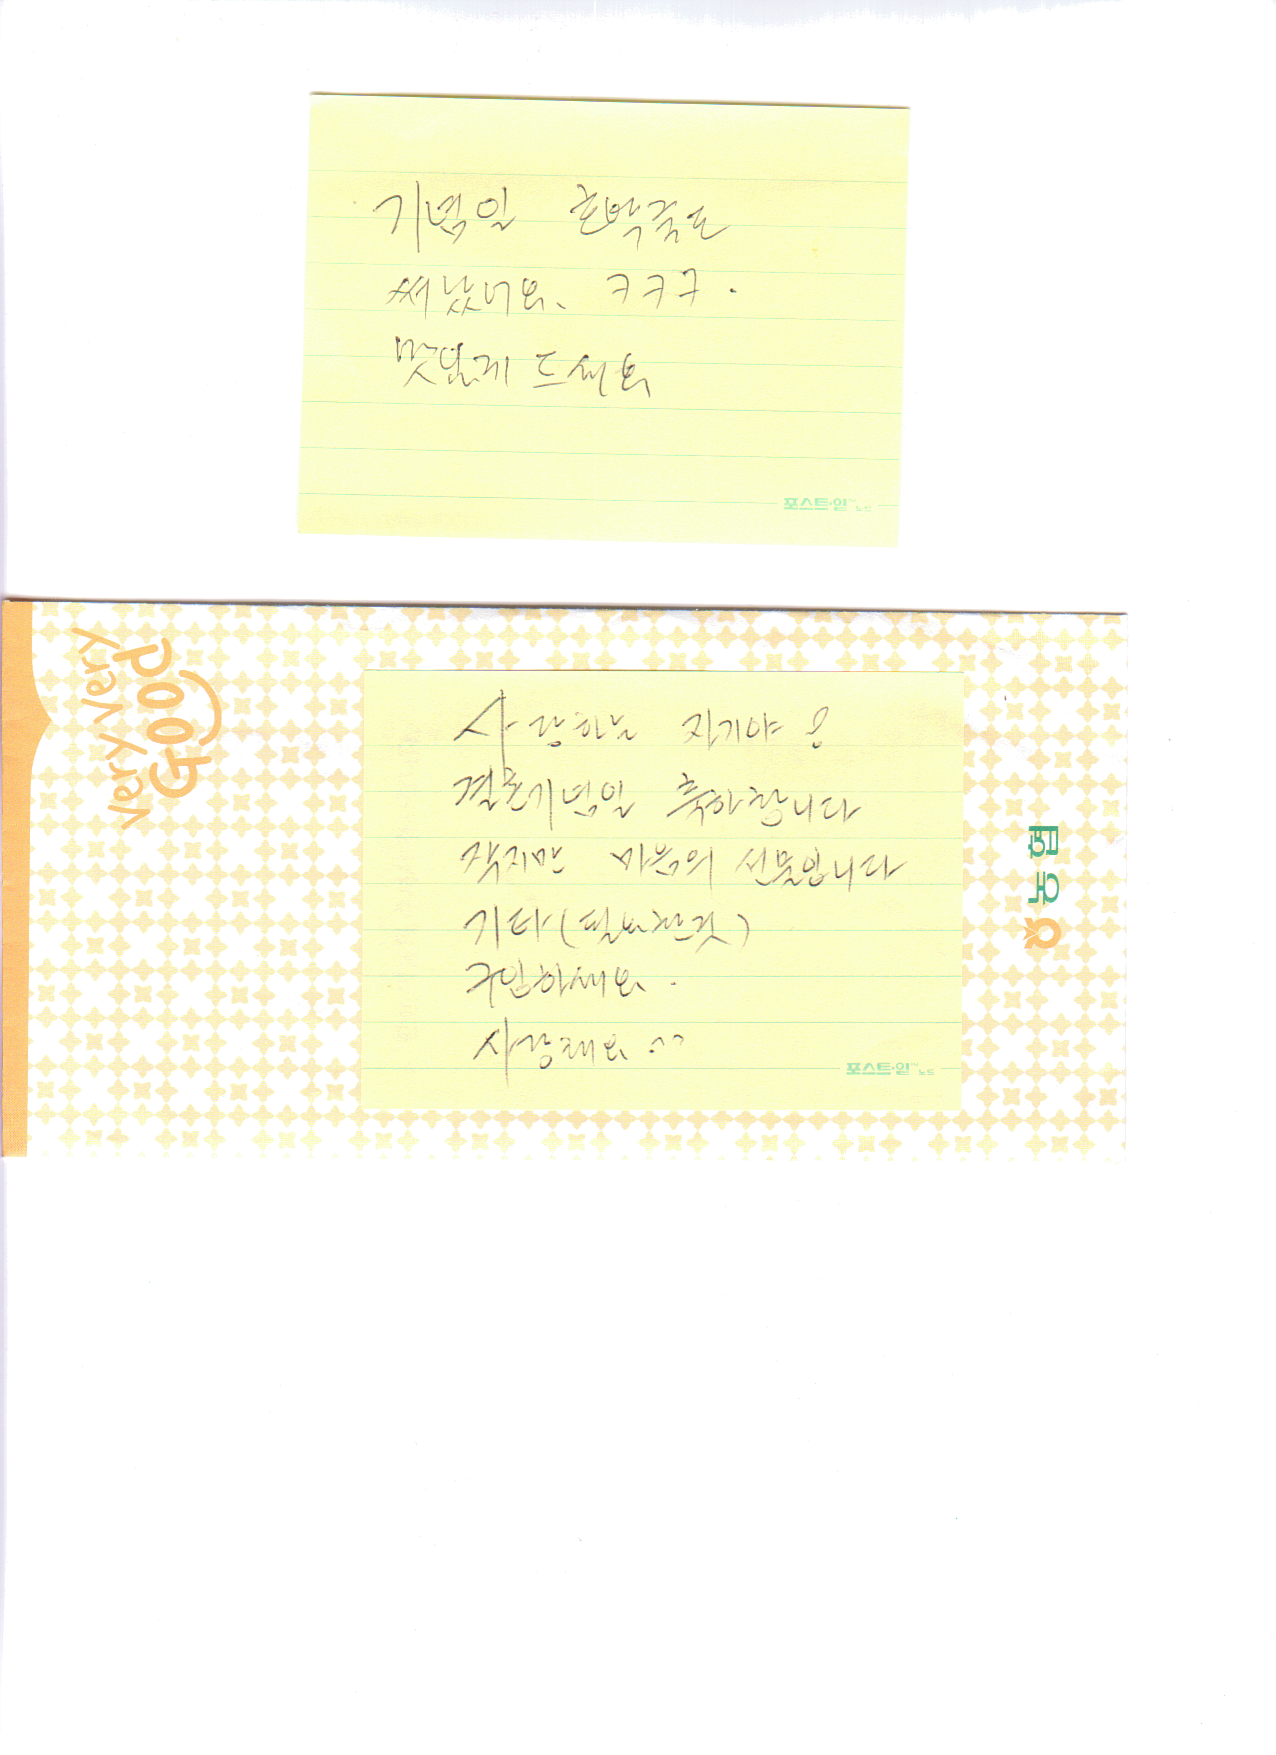 기념일 호박죽도
써났어요. ㅋㅋㅋ.
맛있게 드세요
포스트·잍™ 노트
very very
Good
사랑하는 자기야!
결혼기념일 축하합니다
작지만 마음의 선물입니다
기타(필요한것)
구입하세요.
사랑해요 ^^
포스트·잍™ 노트
농협